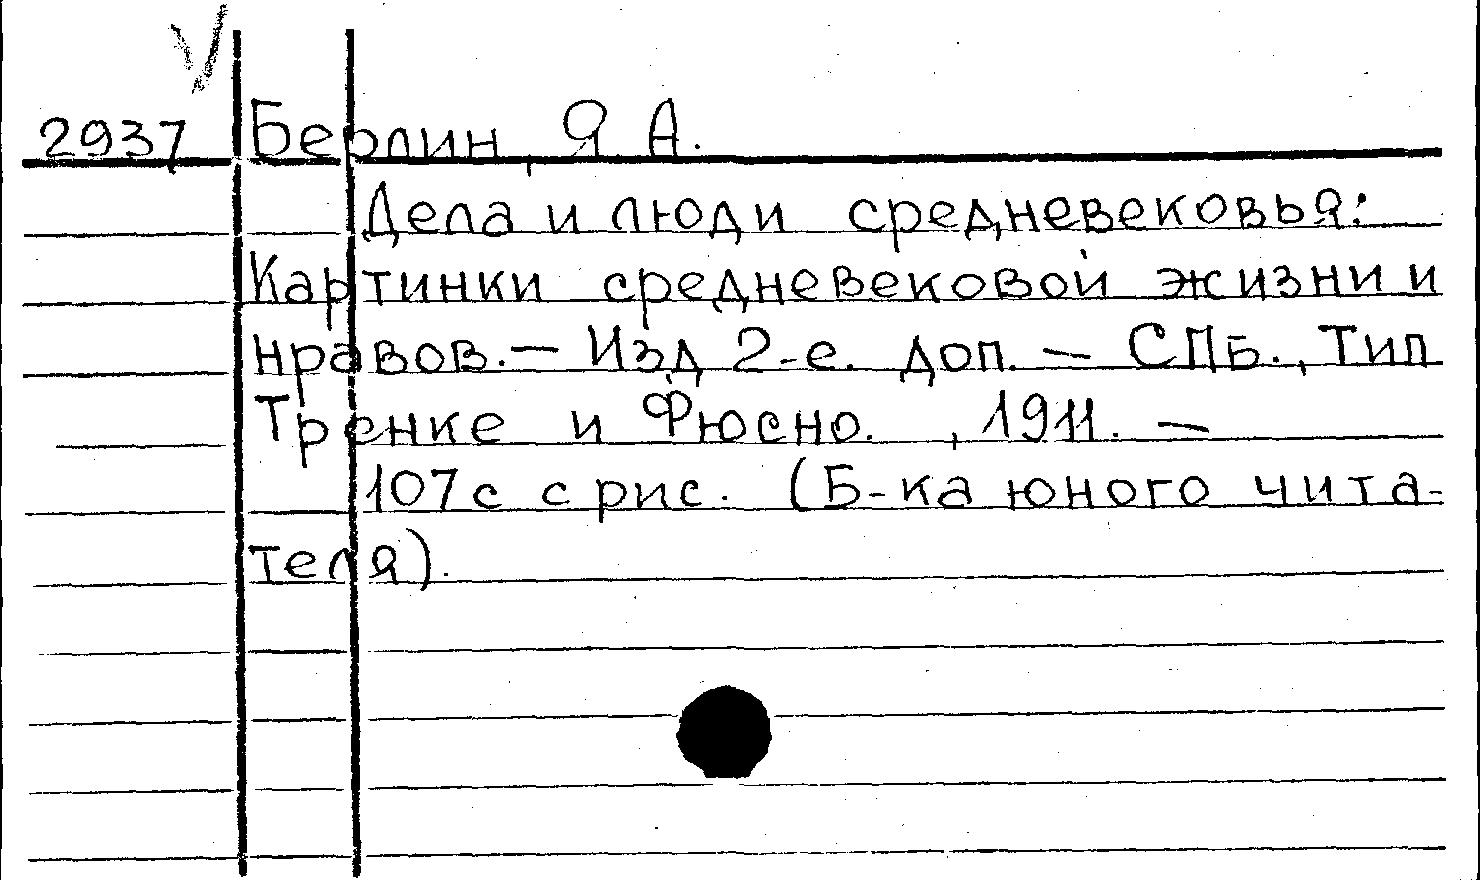 2937 Берлин, Я. А.
Дела и люди средневековья:
Картинки средневековой жизни и
нравов. — Изд 2-е. доп. — СПБ., Тип
Тренке и Фюсно. , 1911. —
107 с с рис. (Б-ка юного чита-
теля).